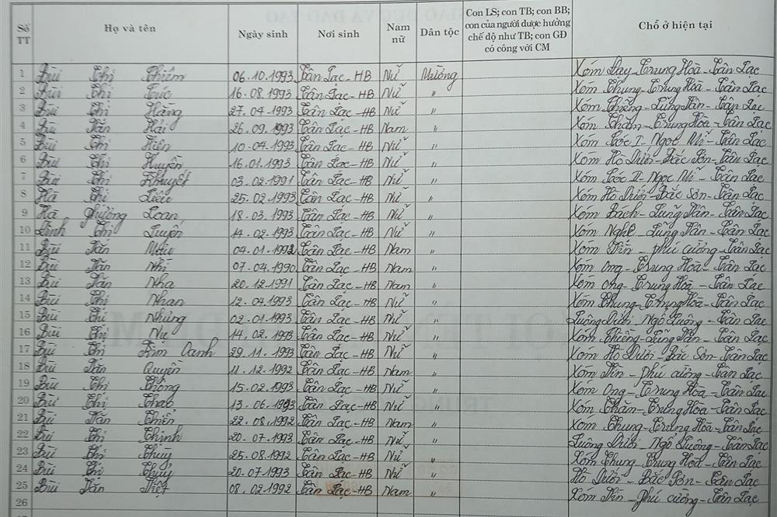 Số TT Họ và tên Ngày sinh Nơi sinh Nam nữ Dân tộc Con LS; con TB; con BB; con của người được hưởng chế độ như TB; con GĐ có công với CM Chỗ ở hiện tại
1 Bùi Thị Thiêm 06.10.1993 Tân Lạc-HB Nữ Mường Xóm Lay-Trung Hoà-Tân Lạc
2 Bùi Thị Trúc 16.08.1993 Tân Lạc-HB Nữ " Xóm Thung-Trung Hoà-Tân Lạc
3 Bùi Thị Hằng 27.04.1993 Tân Lạc-HB Nữ " Xóm Chiềng-Lũng Vân-Tân Lạc
4 Bùi Văn Hải 26.09.1993 Tân Lạc-HB Nam " Xóm Thăm-Trung Hoà-Tân Lạc
5 Bùi Thị Hiên 10.04.1993 Tân Lạc-HB Nữ " Xóm Cóc I-Ngọc Mĩ-Tân Lạc
6 Bùi Thị Huyền 16.01.1993 Tân Lạc-HB Nữ " Xóm Hò Dưới-Bắc Sơn-Tân Lạc
7 Bùi Thị Khuyết 03.02.1991 Tân Lạc-HB Nữ " Xóm Cóc II-Ngọc Mĩ-Tân Lạc
8 Hà Thị Liễu 25.02.1993 Tân Lạc-HB Nữ " Xóm Hò Dưới-Bắc Sơn-Tân Lạc
9 Hà Phương Loan 18.03.1993 Tân Lạc-HB Nữ " Xóm Bách-Lũng Vân-Tân Lạc
10 Đinh Thị Luyến 14.02.1993 Tân Lạc-HB Nữ " Xóm Nghẹ-Lũng Vân-Tân Lạc
11 Bùi Văn 04.01.1992 Tân Lạc-HB Nam " Xóm Vin-Phú Cường-Tân Lạc
12 Bùi Văn Nhi 07.04.1990 Tân Lạc-HB Nam " Xóm Ong-Trung Hoà-Tân Lạc
13 Bùi Văn Nha 20.12.1991 Tân Lạc-HB Nam " Xóm Ong-Trung Hoà-Tân Lạc
14 Bùi Thị Nhan 12.04.1993 Tân Lạc-HB Nữ " Xóm Thung-Trung Hoà-Tân Lạc
15 Bùi Thị Nhung 02.01.1993 Tân Lạc-HB Nữ " Luông Dưới-Ngổ Luông-Tân Lạc
16 Bùi Thị Nự 14.02.1993 Tân Lạc-HB Nữ " Xóm Chiềng-Lũng Vân-Tân Lạc
17 Bùi Thị Kim Oanh 29.11.1993 Tân Lạc-HB Nữ " Xóm Hò Dưới-Bắc Sơn-Tân Lạc
18 Bùi Văn Quyền 11.12.1992 Tân Lạc-HB Nam " Xóm Vin-Phú Cường-Tân Lạc
19 Bùi Thị Thông 15.02.1993 Tân Lạc-HB Nữ " Xóm Ong-Trung Hoà-Tân Lạc
20 Bùi Thị Thao 13.06.1993 Tân Lạc-HB Nữ " Xóm Thăm-Trung Hoà-Tân Lạc
21 Bùi Văn Thiển 22.08.1992 Tân Lạc-HB Nam " Xóm Thung-Trung Hoà-Tân Lạc
22 Bùi Thị Thịnh 20.07.1993 Tân Lạc-HB Nữ " Luông Dưới-Ngổ Luông-Tân Lạc
23 Bùi Thị Thuý 25.08.1992 Tân Lạc-HB Nữ " Xóm Thung-Trung Hoà-Tân Lạc
24 Bùi Thị Thuỷ 20.07.1993 Tân Lạc-HB Nữ " Hò Dưới-Bắc Sơn-Tân Lạc
25 Bùi Văn Việt 08.02.1992 Tân Lạc-HB Nam " Xóm Vin-Phú Cường-Tân Lạc
26